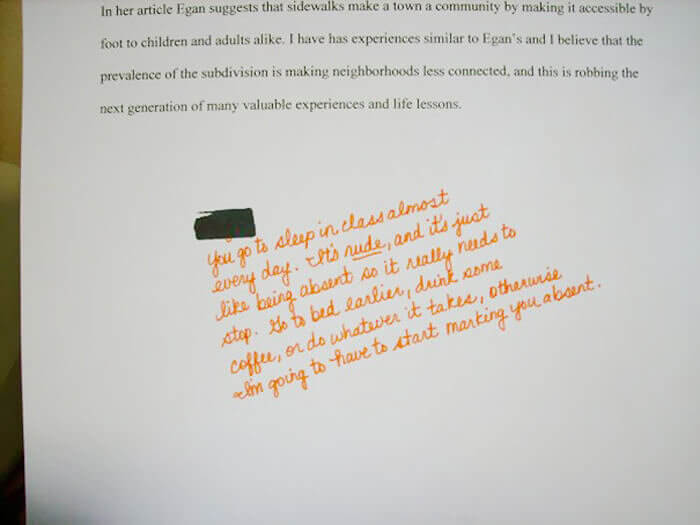 In her article Egan suggests that sidewalks make a town a community by making it accessible by
foot to children and adults alike. I have has experiences similar to Egan's and I believe that the
prevalence of the subdivision is making neighborhoods less connected, and this is robbing the
next generation of many valuable experiences and life lessons.
You go to sleep in class almost
every day. It's rude, and it's just
like being absent so it really needs to
stop. Go to bed earlier, drink some
coffee, or do whatever it takes, otherwise
I'm going to have to start marking you absent.